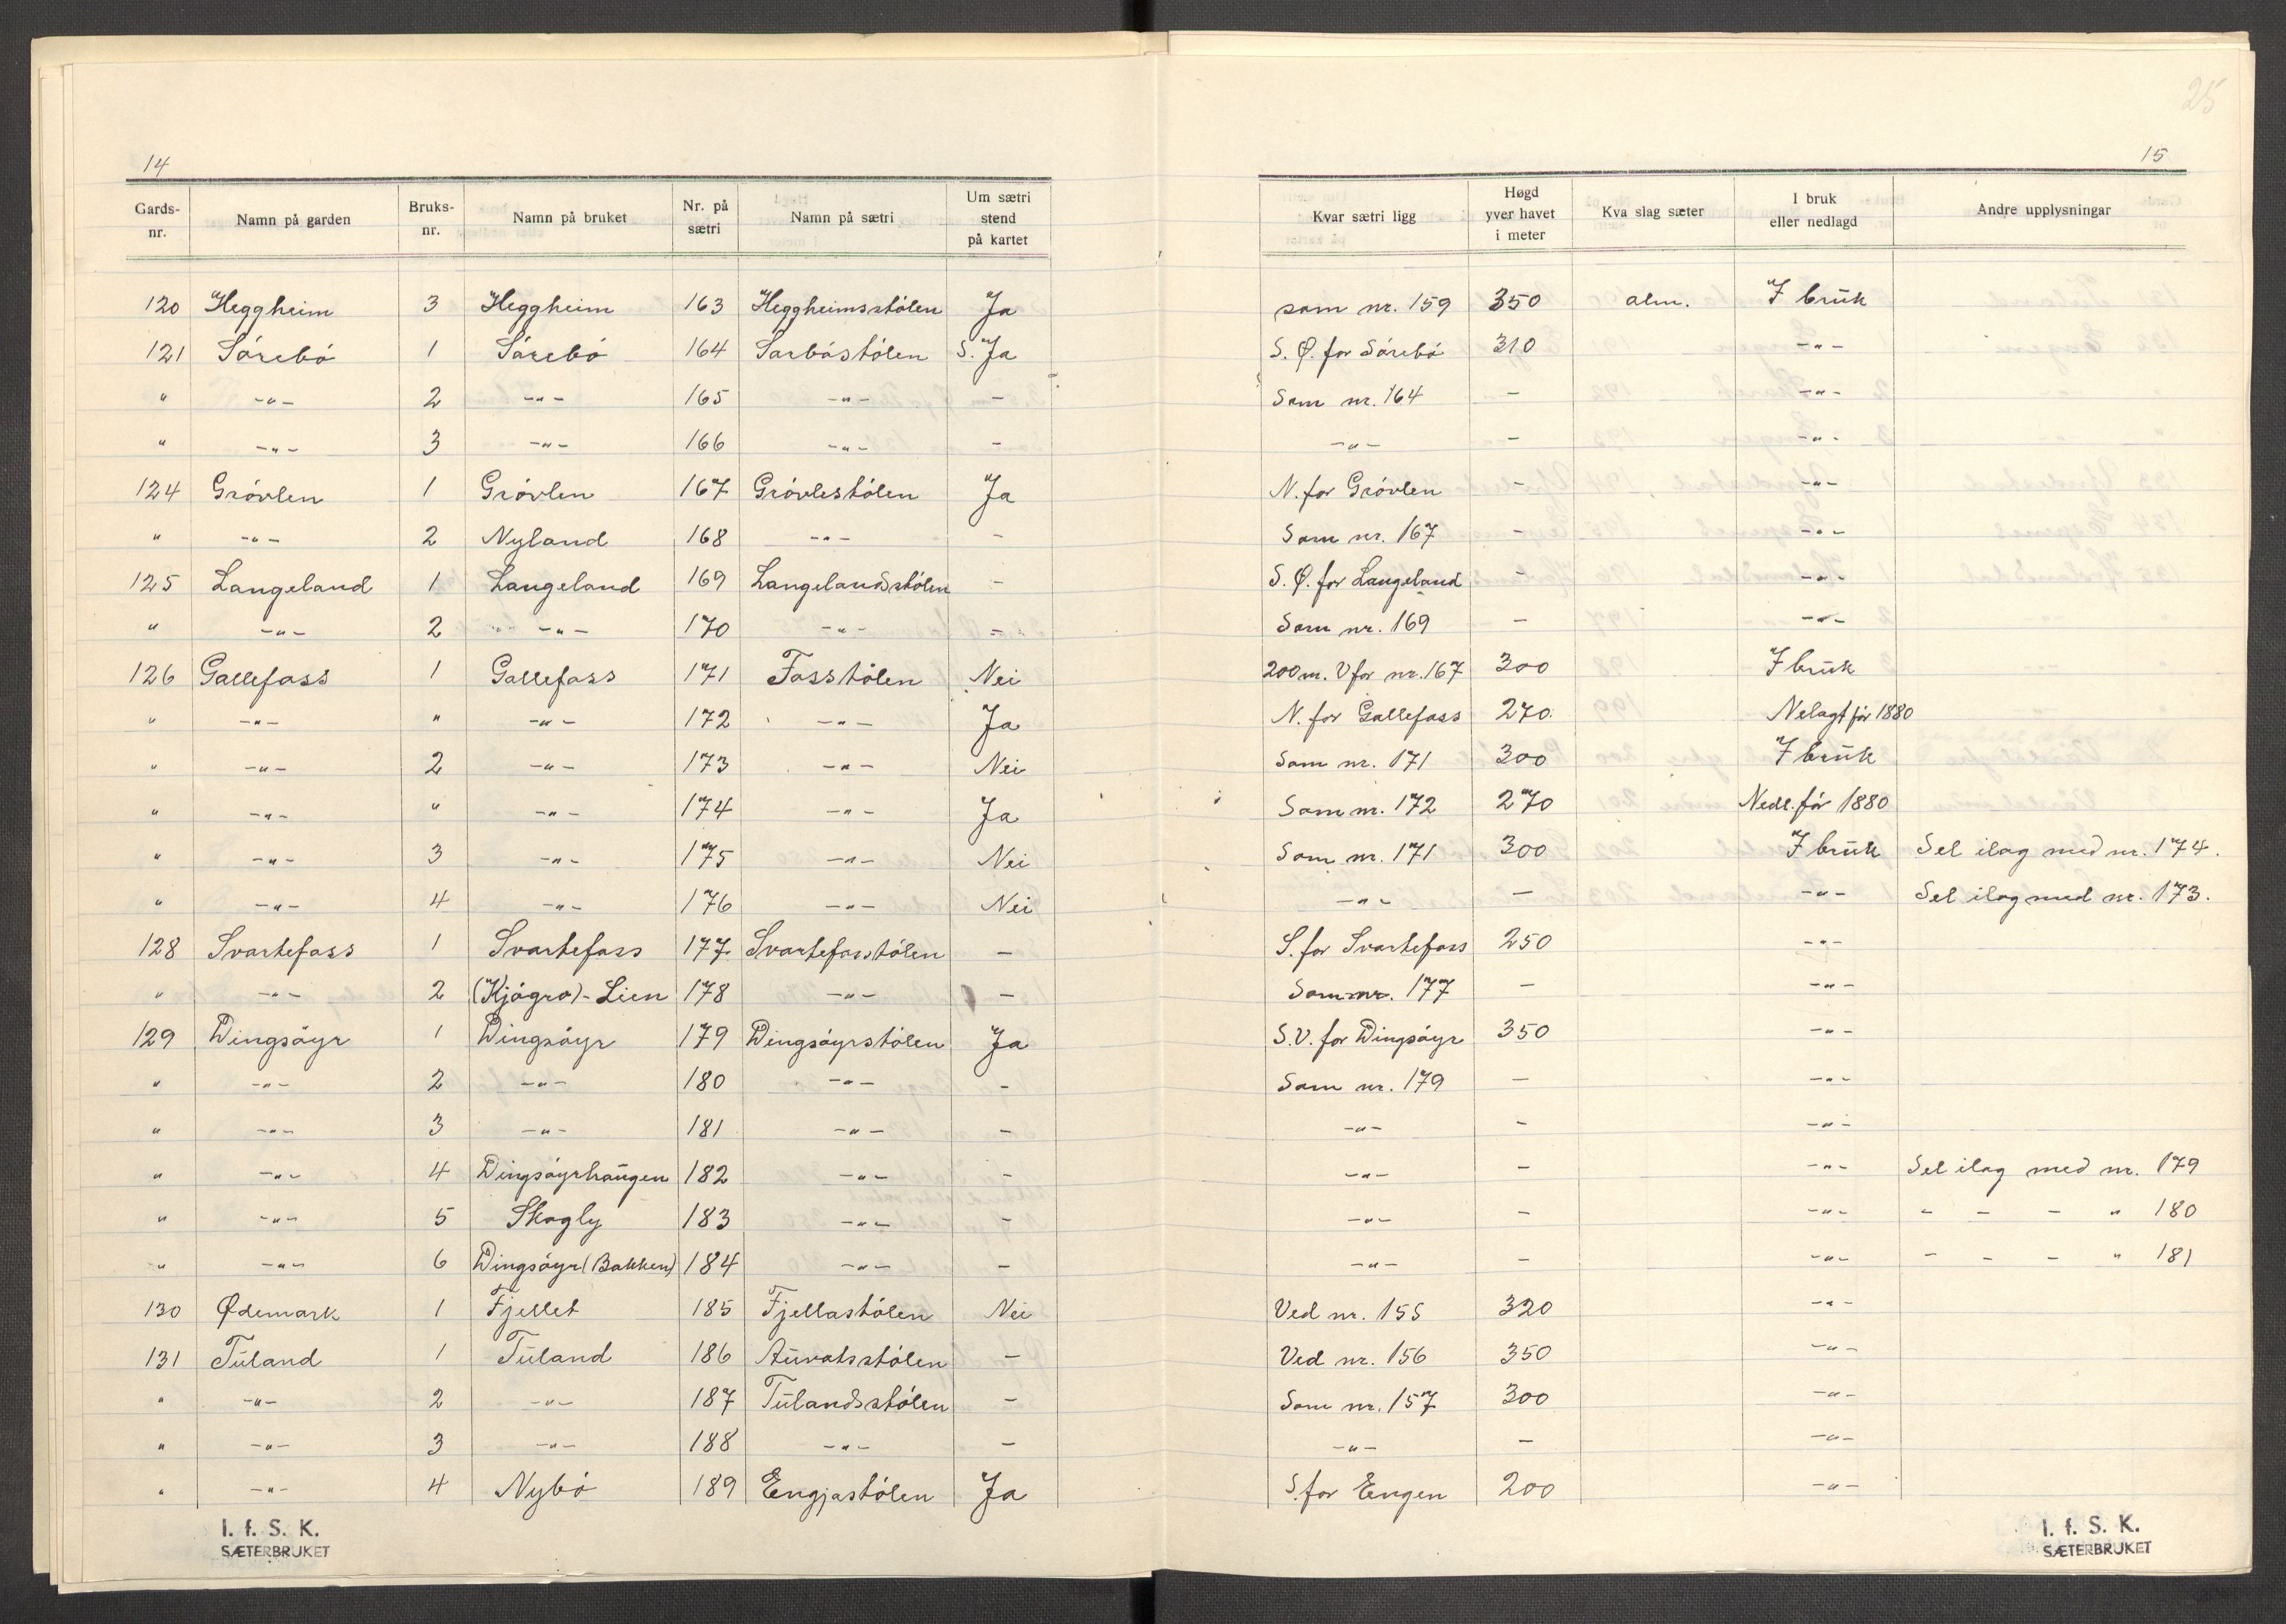 25
14
15
Gards-nr. | Namn på garden | Bruks-nr. | Namn på bruket | Nr. på sætri | Namn på sætri | Um sætri stend på kartet | Kvar sætri ligg | Høgd yver havet i meter | Kva slag sæter | I bruk eller nedlagd | Andre upplysningar
120 | Heggheim | 3 | Heggheim | 163 | Heggheimsstólen | Ja | som nr. 159 | 350 | alm. | I brŭk
121 | Sórebó | 1 | Sórebó | 164 | Sarbóstólen | S. Ja | S. Ø. for Sórebó | 310 | | -"-
" | -"- | 2 | -"- | 165 | -"- | - | Som nr. 164 | - | | -"-
" | -"- | 3 | -"- | 166 | -"- | - | -"- | - | | -"-
124 | Gróvlen | 1 | Gróvlen | 167 | Gróvlestólen | Ja | N. for Gróvlen | - | | -"-
" | -"- | 2 | Nyland | 168 | -"- | - | Som nr. 167 | - | | -"-
125 | Langeland | 1 | Langeland | 169 | Langelandsstólen | - | S. Ø. for Langeland | - | | -"-
" | -"- | 2 | -"- | 170 | -"- | - | Som nr. 169 | - | | -"-
126 | Gallefoss | 1 | Gallefoss | 171 | Fosstólen | Nei | 200 m. V for nr. 167 | 300 | | I brŭk
" | -"- | " | -"- | 172 | -"- | Ja | N. for Gallefoss | 270. | | Nelagt fór 1880
" | -"- | 2 | -"- | 173 | -"- | Nei | Som nr. 171 | 300 | | I brŭk
" | -"- | " | -"- | 174 | -"- | Ja | Som nr. 172 | 270 | | Nedl. fór 1880
" | -"- | 3 | -"- | 175 | -"- | Nei | Som nr. 171 | 300 | | I brŭk | Sel ilag med nr. 174.
" | -"- | 4 | -"- | 176 | -"- | Nei | -"- | - | | -"- | Sel ilag med nr. 173.
128 | Svartefoss | 1 | Svartefoss | 177 | Svartefosstólen | - | S. for Svartefoss | 250 | | -"-
" | -"- | 2 | (Kjógro)-Lien | 178 | -"- | - | Som nr. 177 | - | | -"-
129 | Dingsóyr | 1 | Dingsóyr | 179 | Dingsóyrstólen | Ja | S.V. for Dingsóyr | 350 | | -"-
" | -"- | 2 | -"- | 180 | -"- | - | Som nr. 179 | - | | -"-
" | -"- | 3 | -"- | 181 | -"- | - | -"- | - | | -"-
" | -"- | 4 | Dingsóyrhaŭgen | 182 | -"- | - | -"- | - | | -"- | Sel ilag med nr. 179
" | -"- | 5 | Skogly | 183 | -"- | - | -"- | - | | -"- | - - - " 180
" | -"- | 6 | Dingsóyr (Bakken) | 184 | -"- | - | -"- | - | | -"- | - - - " 181
130 | Ødemark | 1 | Fjellet | 185 | Fjellastólen | Nei | Ved nr. 155 | 320 | | -"-
131 | Tŭland | 1 | Tŭland | 186 | Aŭratsstólen | - | Ved nr. 156 | 350 | | -"-
" | -"- | 2 | -"- | 187 | Tŭlandsstólen | - | Som nr. 157 | 300 | | -"-
" | -"- | 3 | -"- | 188 | -"- | - | -"- | - | | -"-
" | -"- | 4 | Nybó | 189 | Engjastólen | Ja | S. for Engen | 200 | | -"-
I. f. S. K.
SÆTERBRUKET
I. f. S. K.
SÆTERBRUKET